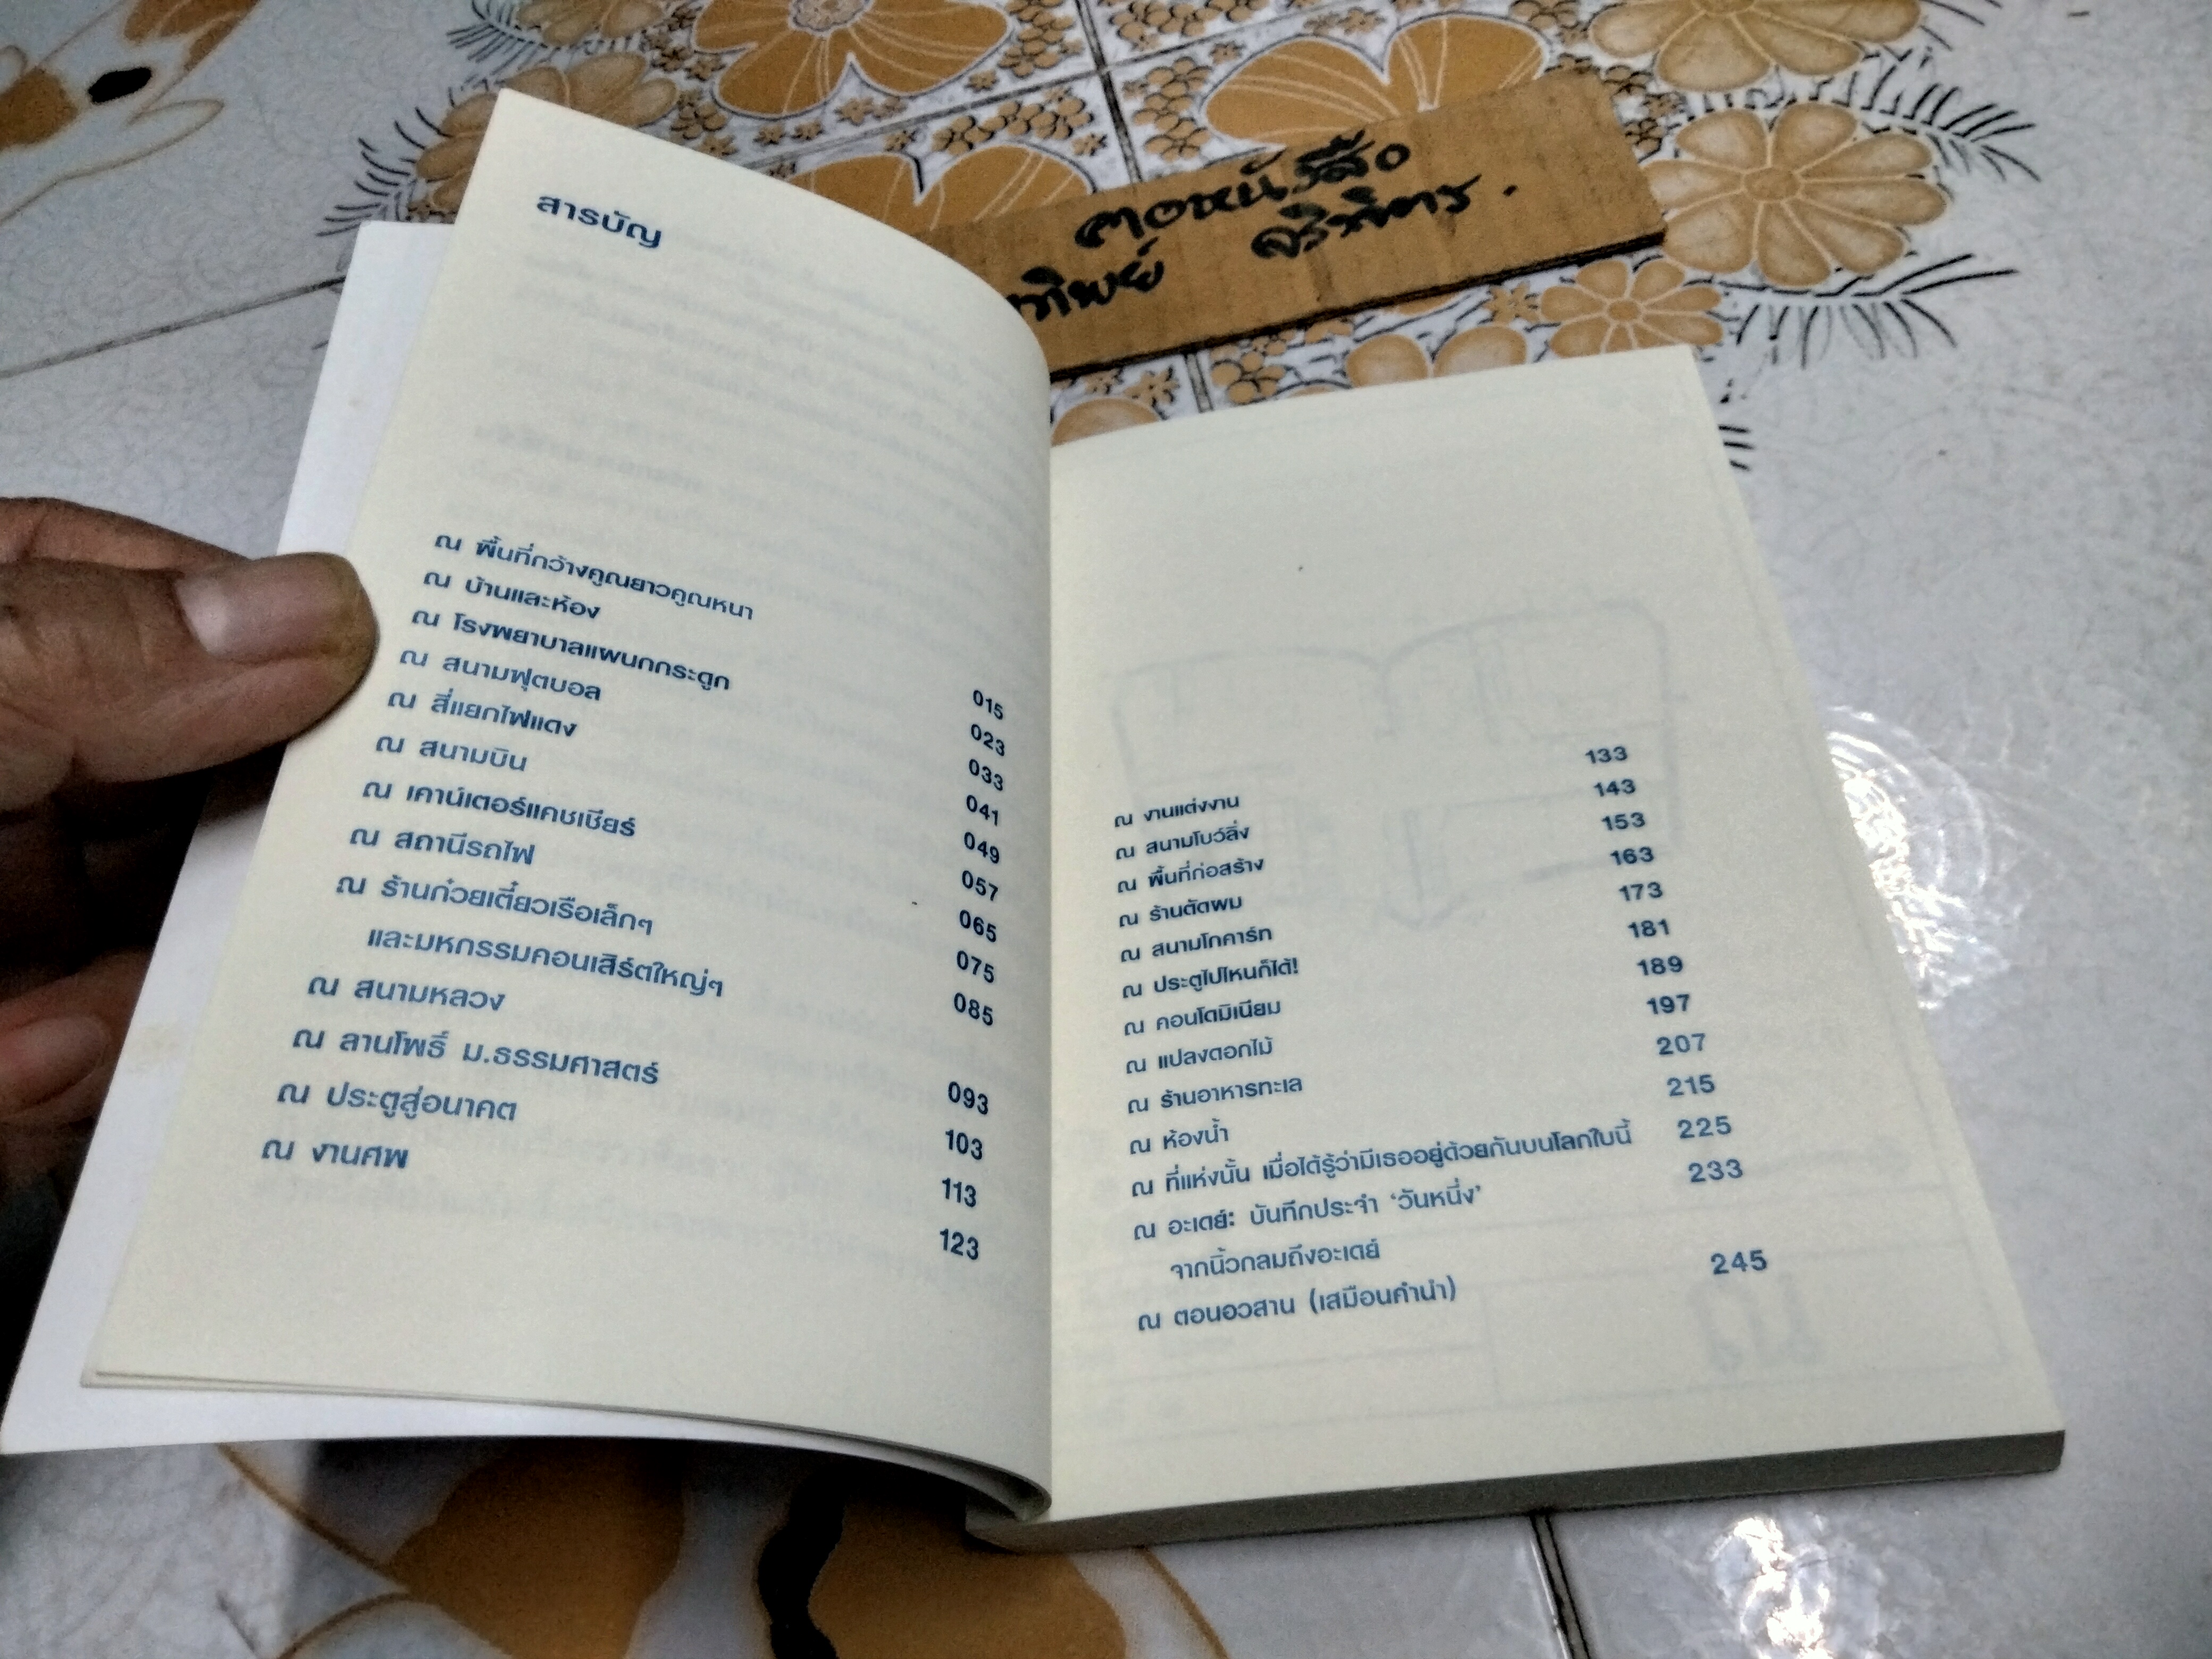 คอหนังสือ
ทิพย์ จริงจิตร.
สารบัญ
ณ พื้นที่กว้างคูณยาวคูณหนา 015
ณ บ้านและห้อง 023
ณ โรงพยาบาลแผนกกระดูก 033
ณ สนามฟุตบอล 041
ณ สี่แยกไฟแดง 049
ณ สนามบิน 057
ณ เคาน์เตอร์แคชเชียร์ 065
ณ สถานีรถไฟ 075
ณ ร้านก๋วยเตี๋ยวเรือเล็กๆ 085
และมหกรรมคอนเสิร์ตใหญ่ๆ
ณ สนามหลวง 093
ณ ลานโพธิ์ ม.ธรรมศาสตร์ 103
ณ ประตูสู่อนาคต 113
ณ งานศพ 123
ณ งานแต่งงาน 133
ณ สนามโบว์ลิ่ง 143
ณ พื้นที่ก่อสร้าง 153
ณ ร้านตัดผม 163
ณ สนามโกคาร์ท 173
ณ ประตูไปไหนก็ได้! 181
ณ คอนโดมิเนียม 189
ณ แปลงดอกไม้ 197
ณ ร้านอาหารทะเล 207
ณ ห้องน้ำ 215
ณ ที่แห่งนั้น เมื่อได้รู้ว่ามีเธออยู่ด้วยกันบนโลกใบนี้ 225
ณ อะเดย์: บันทึกประจำ ‘วันหนึ่ง’ 233
จากนิ้วกลมถึงอะเดย์
ณ ตอนอวสาน (เสมือนคำนำ) 245